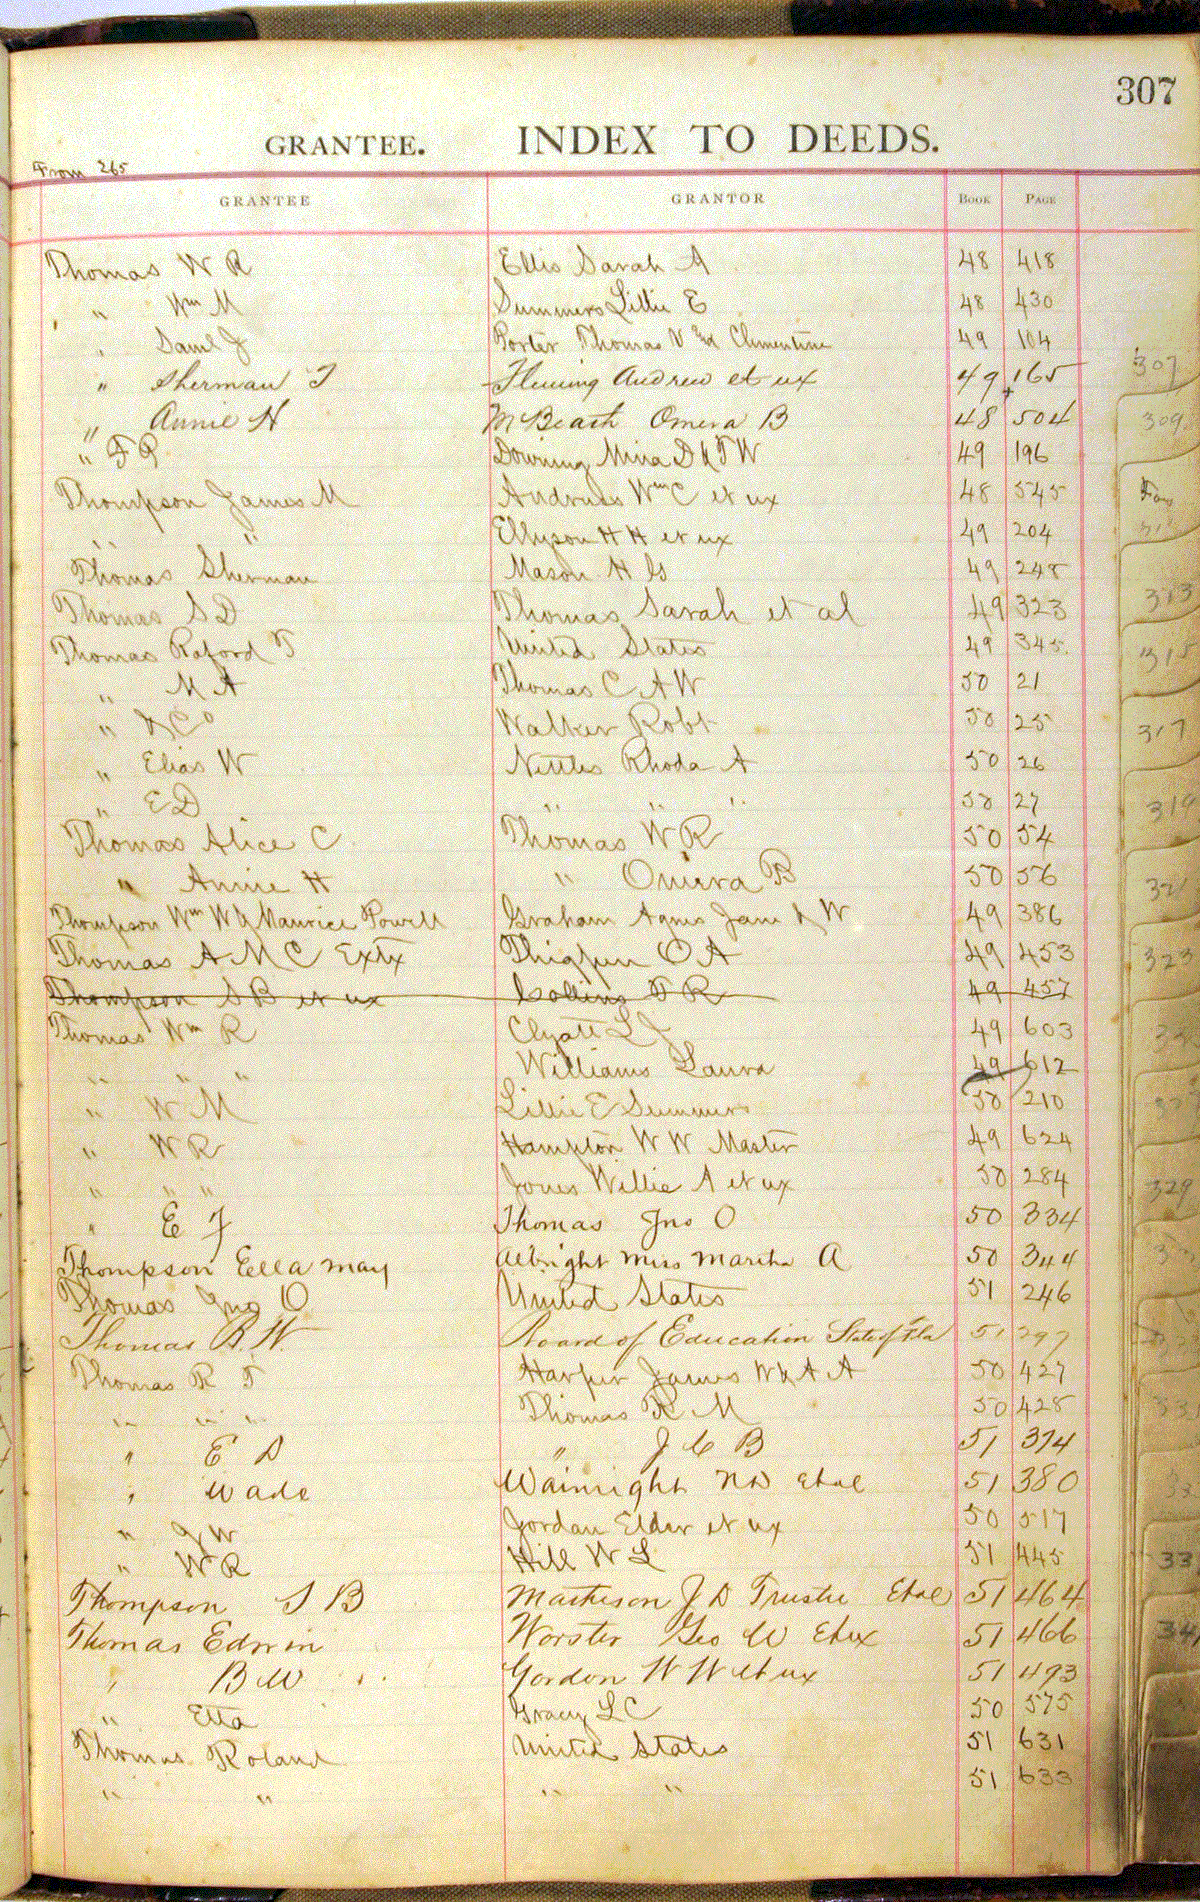 307
GRANTEE. INDEX TO DEEDS.
From 265
GRANTEE GRANTOR BOOK PAGE
Thomas W R Ellis Sarah A 48 418
" Wm M Summers Lillie E 48 430
" Saml J Porter Thomas V & Clementine 49 104
" Sherman T Fleming Andrew et ux 49 165
" Annie H McBeath Omera B 48 504
" F P Downing Mina D & T W 49 196
Thompson James M Andruss Wm C et ux 48 545
" " Ellyson H H et ux 49 204
Thomas Sherman Mason H G 49 248
Thomas S D Thomas Sarah et al 49 323
Thomas Raford T United States 49 345
" M A Thomas C A W 50 21
" & Co Walker Robt 50 25
" Elias W Nettles Rhoda A 50 26
" E D " " " 50 27
Thomas Alice C Thomas W R 50 54
" Annie H " Omera B 50 56
Thompson Wm W & Maurice Powell Graham Agnes Jane & W 49 386
Thomas A M C Extx Thigpen O A 49 453
Thompson S B et ux Collins F R 49 457
Thomas Wm R Clyatt L J 49 603
" " " Williams Laura 49 612
" W M Lillie E Summers 50 210
" W R Hampton W W Master 49 624
" " " Jones Willie A et ux 50 284
" E J Thomas Jno O 50 334
Thompson Ella May Albright Miss Martha A 50 344
Thomas Jno O United States 51 246
Thomas B. W. Board of Education State of Fla 51 297
Thomas R T Harper James W & A A 50 427
" " " Thomas R M 50 428
" E D " J C B 51 374
" Wade Wainright N D et al 51 380
" J W Jordan Elder et ux 50 517
" W R Hill W L 51 445
Thompson S B Matheson J D Trustee et al 51 464
Thomas Edwin Worster Geo W et ux 51 466
" B W Gordon W W et ux 51 493
" Etta Gracy L C 50 575
Thomas Roland United States 51 631
" " " " 51 633
307
309
313
315
317
319
321
323
329